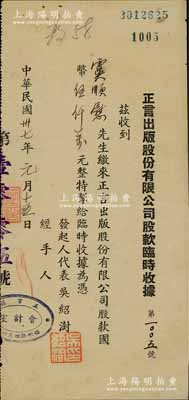 上海阳明拍卖
3012825
1005
正言出版股份有限公司股款臨時收據
第一〇〇五號
茲收到
先生繳來正言出版股份有限公司股款國
幣伍仟萬元整特掣給臨時收據為憑
發起人代表 吳紹澍
經手人
中華民國卅七年元月十五日
第壹零零伍號
上海阳明拍卖